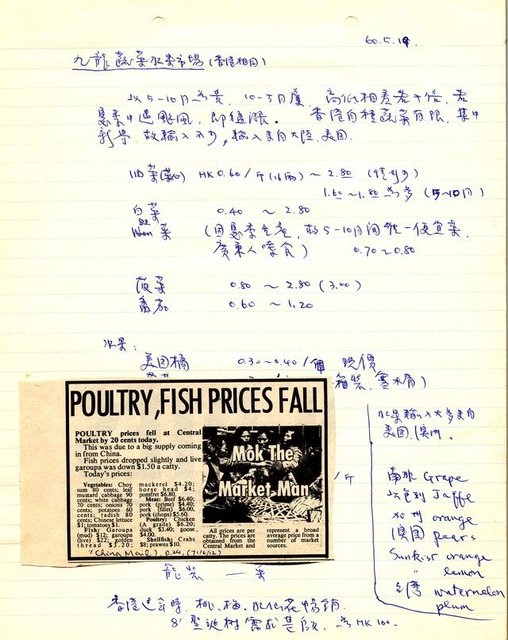 60.5.19.
九龍蔬菜批發市場(香港相同)
以5-10月為貴, 10-5月廉, 高低相差若干倍, 若
遇颱風, 即值漲. 香港自種蔬菜有限, 集中
新界, 故輸入不少, 輸入來自大陸, 美國.
油菜 HK 0.60/斤(16兩) ~ 2.80
1.60 ~ 1.80 為多 (5~10月)
白菜 0.40 ~ 2.80
菜 (因夏季生產, 故5-10月間唯一便宜菜,
廣東人嗜食) 0.70 ~ 0.80
菠菜 0.80 ~ 2.80 (3.00)
番茄 0.60 ~ 1.20
水果:
美國橘 0.30~0.40/個 現價
箱裝,
POULTRY, FISH PRICES FALL
POULTRY prices fell at Central
Market by 20 cents today.
This was due to a big supply coming
in from China.
Fish prices dropped slightly and live
garoupa was down $1.50 a catty.
Today's prices:
Vegetables: Choy
sum 80 cents; leaf
mustard cabbage 90
cents; white cabbage
70 cents; onions 70
cents; potatoes 60
cents; radish 80
cents; Chinese lettuce
$1; tomatoes $1.
Fish: Garoupa
(mud) $12; garoupa
(live) $22; golden
thread $5.20;
mackerel $4.20;
horse head $4;
pomfret $6.80.
Meat: Beef $6.40;
pork (prime) $4.40;
pork (fillet) $6.00;
pork (chops) $5.60.
Poultry: Chicken
(A grade) $6.20;
duck $3.40; goose
$4.00.
Shellfish: Crabs
$8; prawns $10.
Mok The
Market Man
All prices are per
catty. The prices are
obtained from the
Central Market and
represent a broad
average price from a
number of market
sources.
"China Mail"
水果輸入大多來自
美國, 澳洲.
/斤
南非 Grape
以色列 Jaffe
orange
(美國) pears
Sunkist orange
" lemon
台灣 watermelon
plum
籠裝 一
香港過年時, 桃, 梅, 水仙花暢銷.
聖誕樹需求甚殷, 為HK 100.